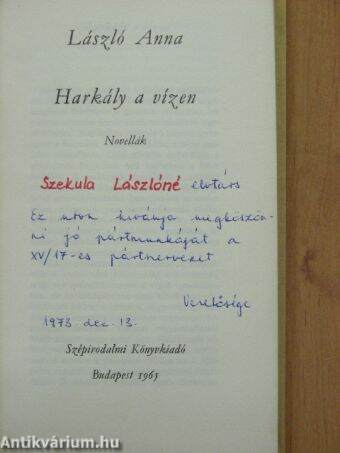 László Anna
Harkály a vízen
Novellák
Szekula Lászlóné elvtárs
Ez uton kivánja megköszön-
ni jó pártmunkáját a
XV/17-es pártszervezet
Vezetősége
1973 dec. 13.
Szépirodalmi Könyvkiadó
Budapest 1965
Antikvárium.hu